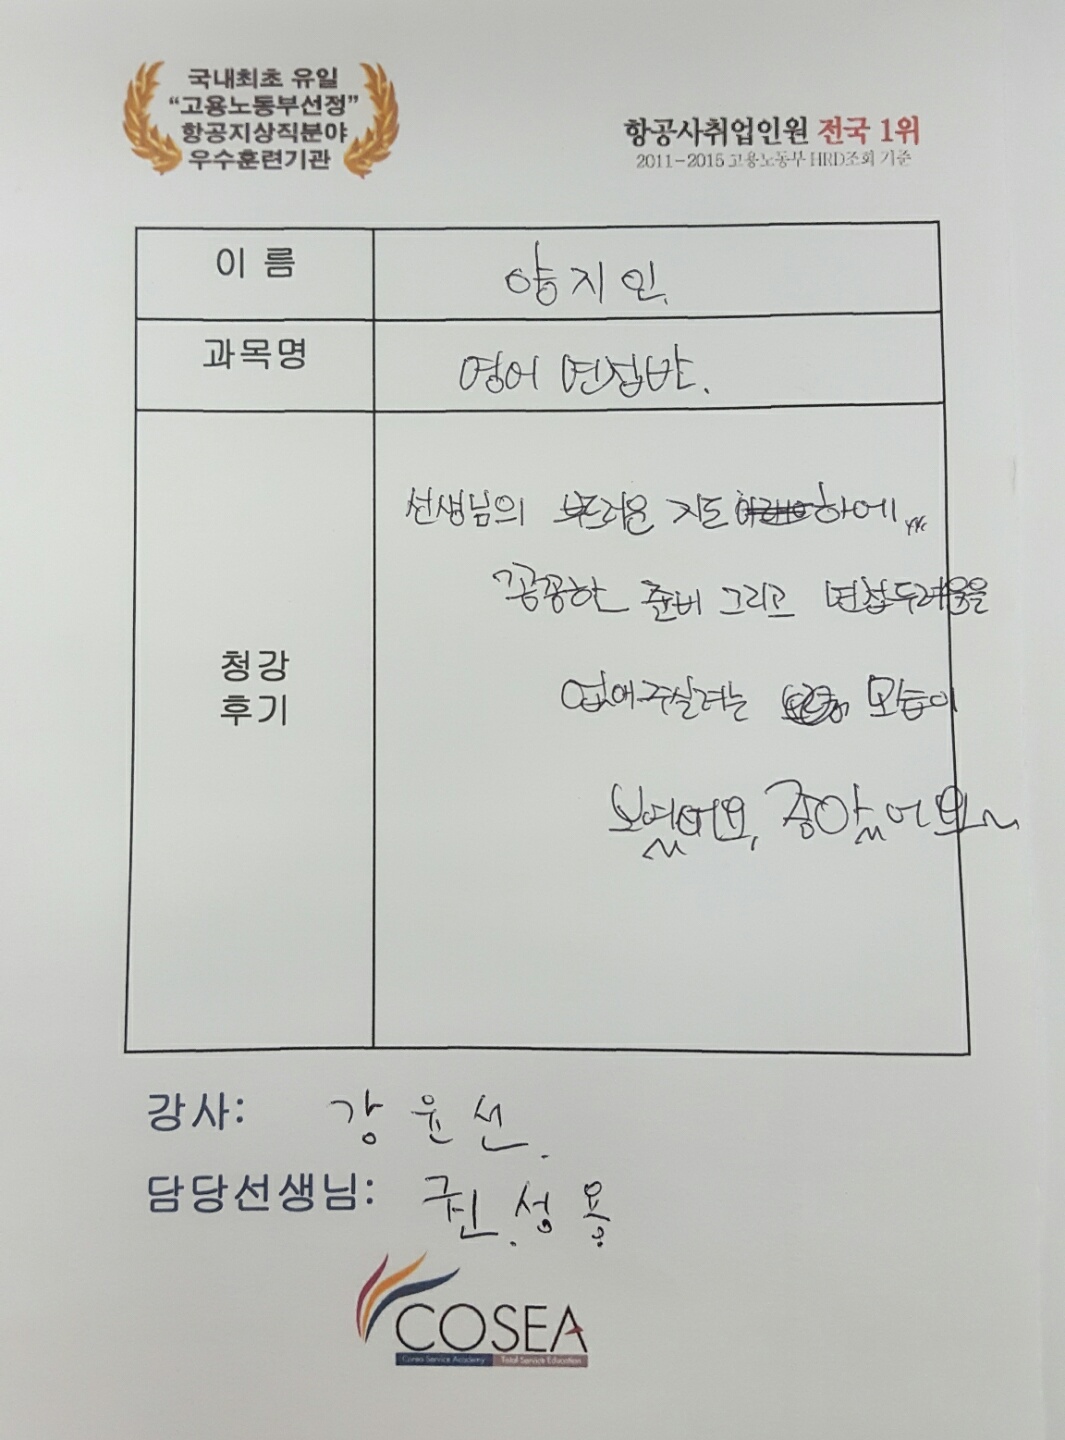 국내최초 유일
“고용노동부선정”
항공지상직분야
우수훈련기관
항공사취업인원 전국 1위
2011-2015 고용노동부 HRD조회 기준
이 름
양지인
과목명
영어 면접반.
선생님의 부드러운 지도 하에
꼼꼼한 준비 그리고 면접두려움을
없애주실려는 모습이
보였어요, 좋았어요~
청강
후기
강사: 강윤선.
담당선생님: 권성용
COSEA
Corea Service Academy Total Service Education